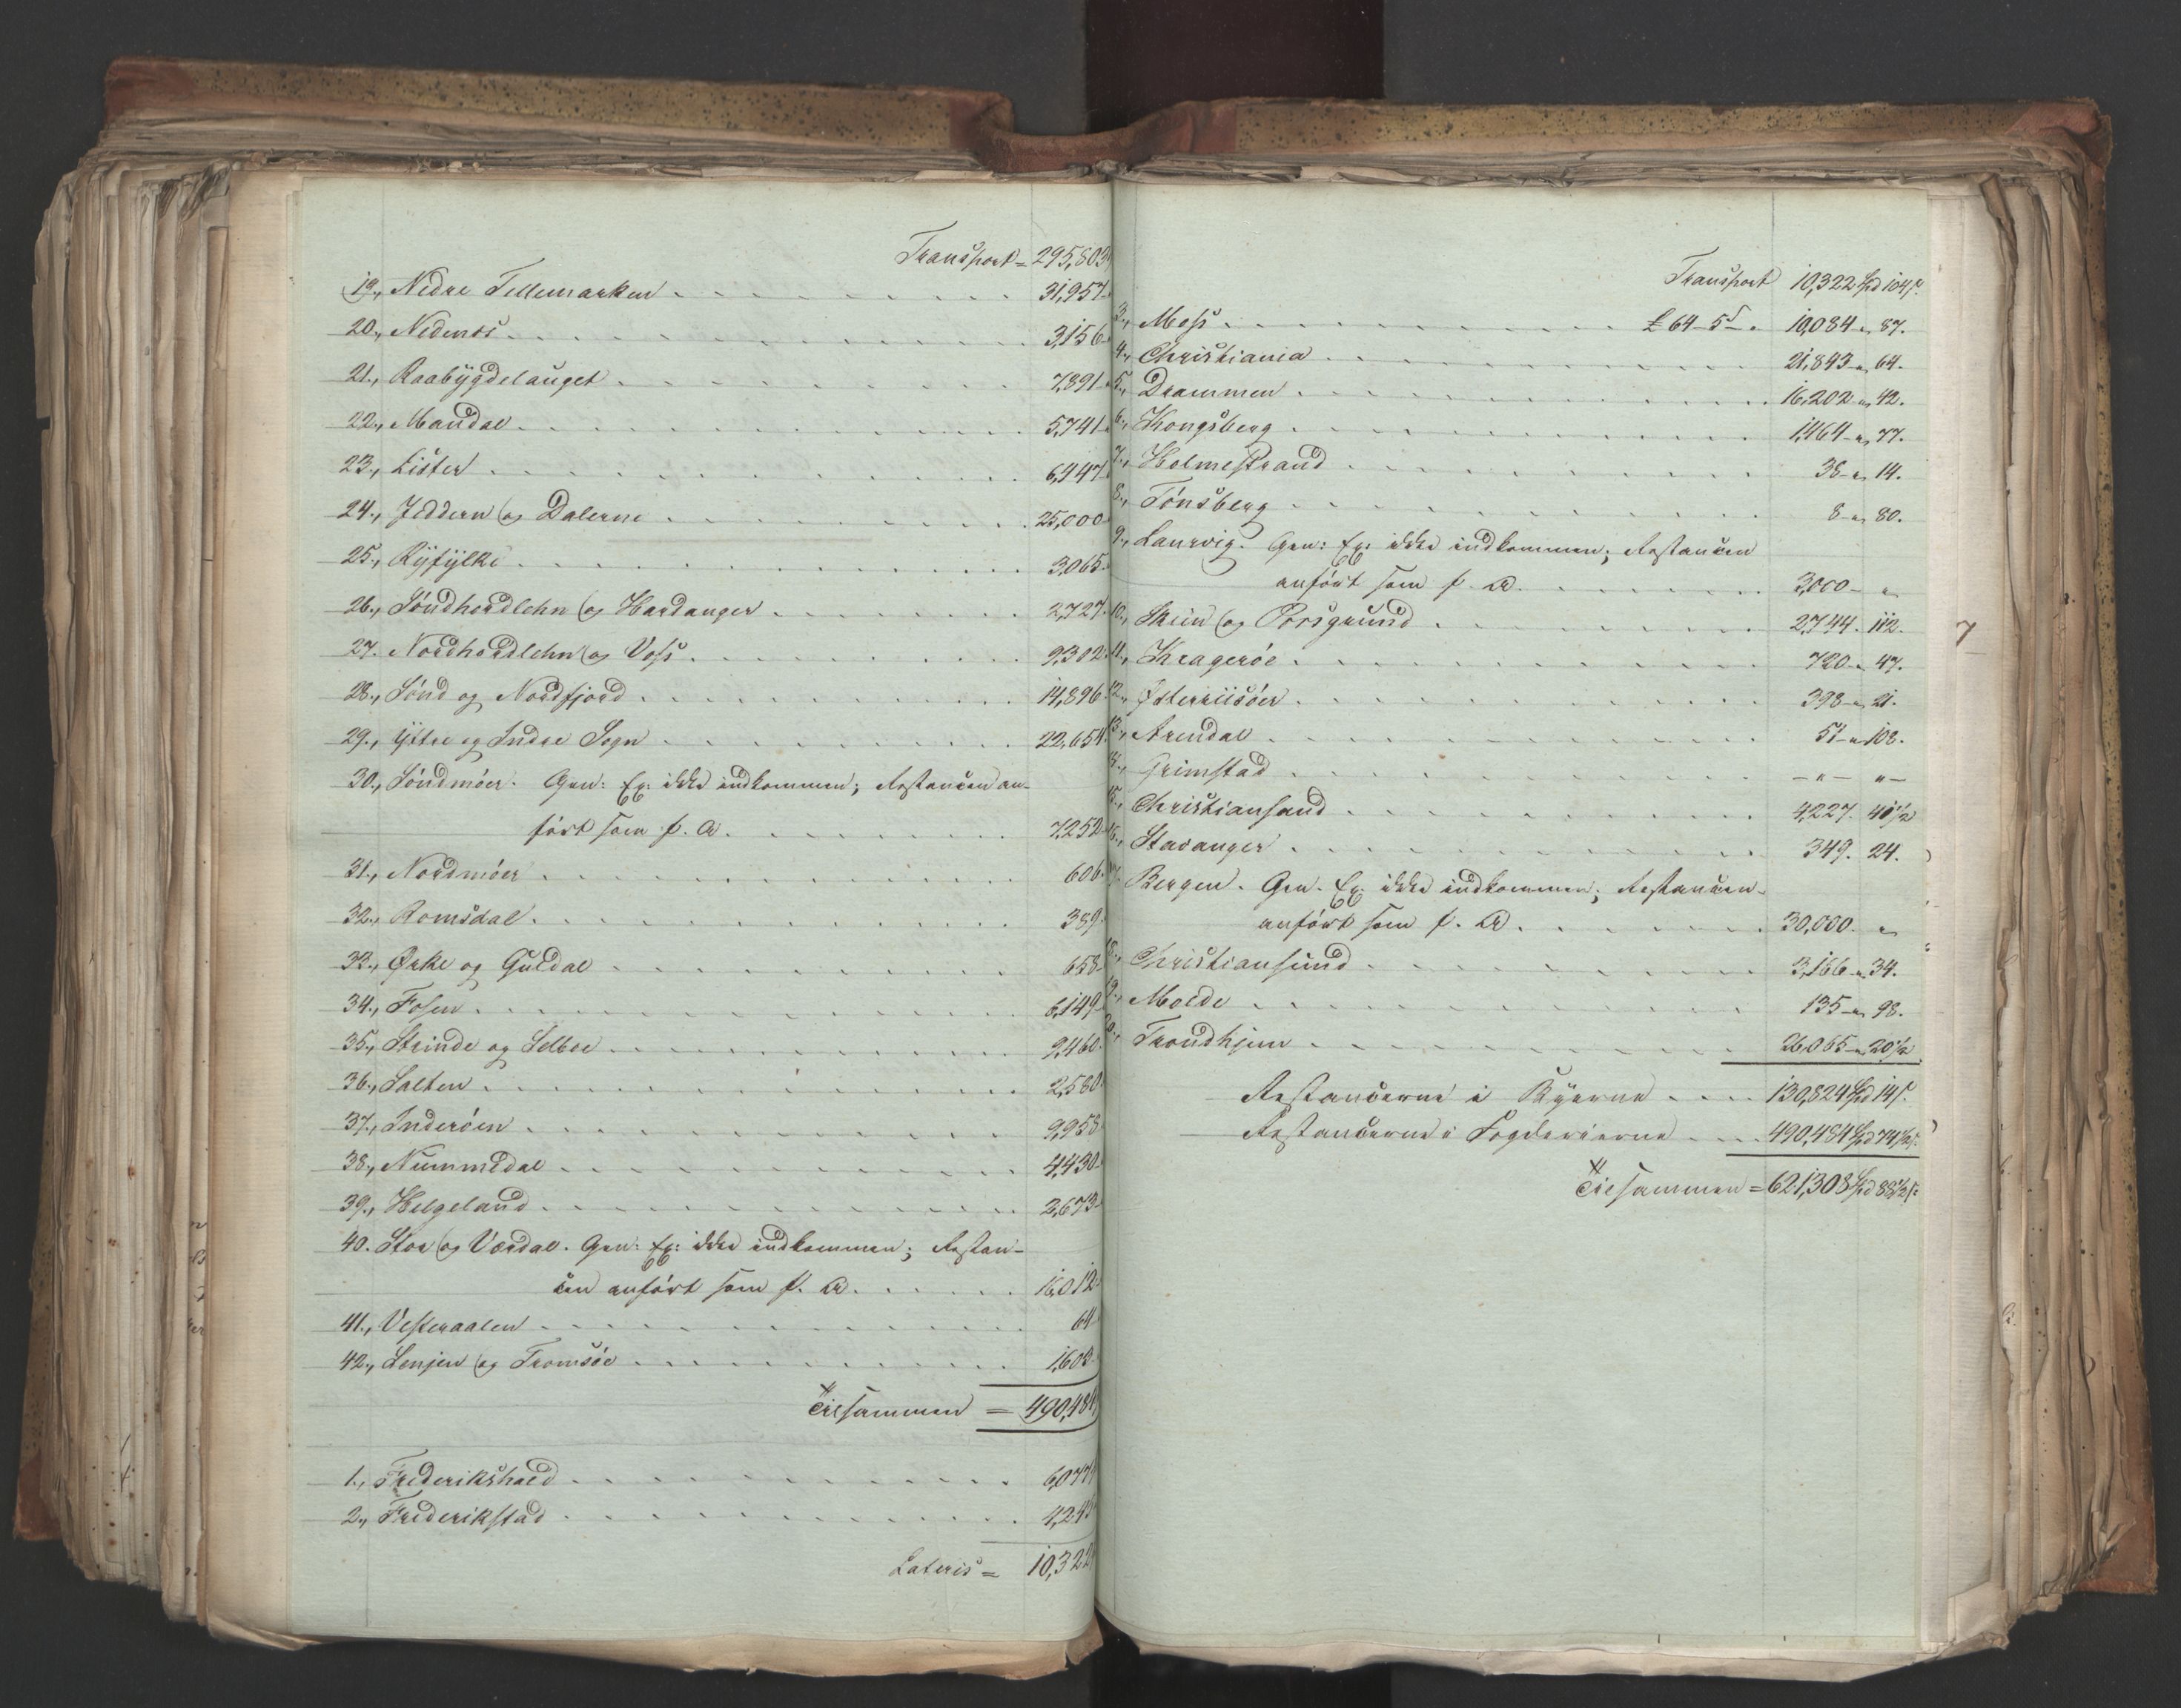 Transport = 295,803
19., Nedre Tellemarken . . . . . . . . . 31,957
20., Nedenæs . . . . . . . . . . . . . 3,156
21., Raabÿgdelauget . . . . . . . . . . 7,891
22., Mandal . . . . . . . . . . . . . 5,741
23., Lister . . . . . . . . . . . . . 6,447
24., Jeddern og Dalerne . . . . . . . . . 25,000
25., Rÿfÿlke . . . . . . . . . . . . . 3,065
26., Søndhordlehn og Hardanger . . . . . . 2,727
27. Nordhordlehn og Voss . . . . . . . . 9,302
28., Sønd og Nordfjord . . . . . . . . . 14,896
29., Ÿttre og Indre Sogn . . . . . . . . 22,654
30., Søndmøer. Gen: Ex: ikke indkommen; Restancen an-
ført som f. A. . . . . . . . 7,252
31., Nordmøer . . . . . . . . . . . . 606
32., Romsdal . . . . . . . . . . . . . 389
33., Ørke og Guldal . . . . . . . . . . 658
34., Fosen . . . . . . . . . . . . . . 6,149
35., Strinde og Selboe . . . . . . . . . 9,460
36., Salten . . . . . . . . . . . . . 2,580
37., Inderøen . . . . . . . . . . . . 9,958
38., Nummedal . . . . . . . . . . . . 4,430
39., Helgeland . . . . . . . . . . . . 2,673
40. Stør og Værdal. Gen: Ex: ikke indkommen; Restan-
cen anført som f. A. . . . . . 16,012
41., Vesteraalen . . . . . . . . . . . 64
42., Senjen og Tromsøe . . . . . . . . . 1,603
Tilsammen = 490,484
1., Frederikshald . . . . . . . . . . . 6,077
2., Frederikstad . . . . . . . . . . . 4,245
Lateris = 10,322
Transport 10,322 Spd 104 s.
3., Moss . . . . . . . . . . £ 64-5 s. 10,084 - " 87.
4., Christiania . . . . . . . . . . . 21,843 - " 64.
5., Drammen . . . . . . . . . . . . . 16,202 - " 42.
6., Kongsberg . . . . . . . . . . . . 1,464 - " 77.
7., Holmestrand . . . . . . . . . . . 38 - " 14.
8., Tønsberg . . . . . . . . . . . . 8 - " 80.
9., Laurvig. Gen: Ex: ikke indkommen; Restancen
anført som f. A. . . . . . . 3,000 - "
10., Skien og Porsgrund . . . . . . . . 2,744. 112.
11., Kragerøe . . . . . . . . . . . . 720 - " 47.
12., Østerriisøer . . . . . . . . . . 398 - " 21.
13., Arendal . . . . . . . . . . . . . 57 - " 108.
14., Grimstad . . . . . . . . . . . . - " - " -
15., Christiansand . . . . . . . . . . 4,227. 40 1/2
16., Stavanger . . . . . . . . . . . . 349. 24.
17., Bergen. Gen. Ex: ikke indkommen; Restancen
anført som f. A. . . . . . . 30,000. "
18., Christiansund . . . . . . . . . . 3,166 - " 34.
19., Molde . . . . . . . . . . . . . . 135 - " 98.
20., Trondhjem . . . . . . . . . . . . 26,065 - " 20 1/2
Restancerne i Byerne . . . . 130,824 Spd 14 s.
Restancerne i Fogderierne . . . . 490,484 Spd 74 1/2 s.
Tilsammen = 621,308 Spd 88 1/2 s.